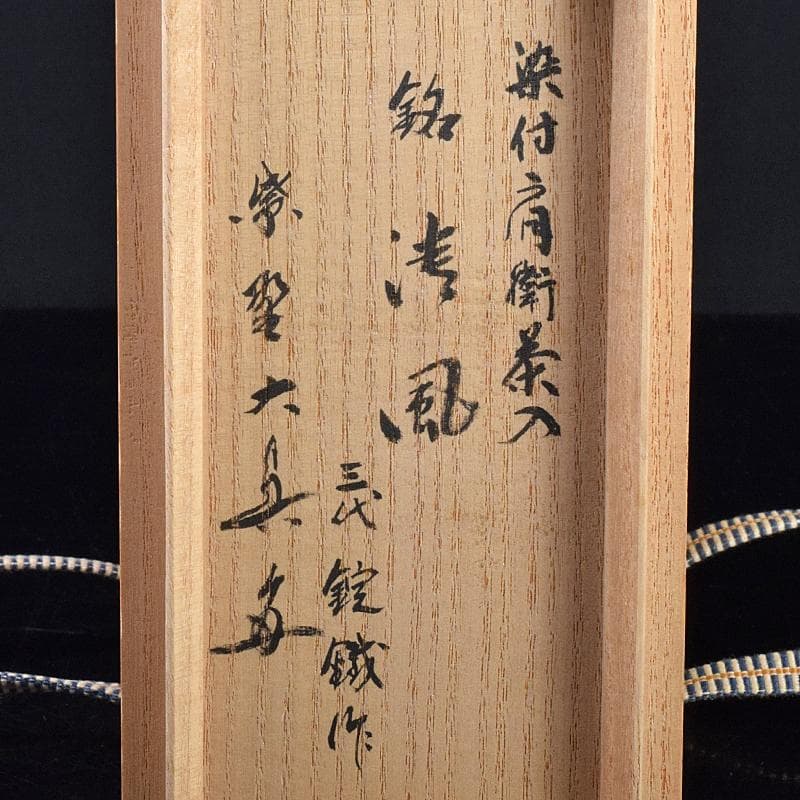 染付肩衝茶入
銘 清風
三代 錠鐵作
紫野大真